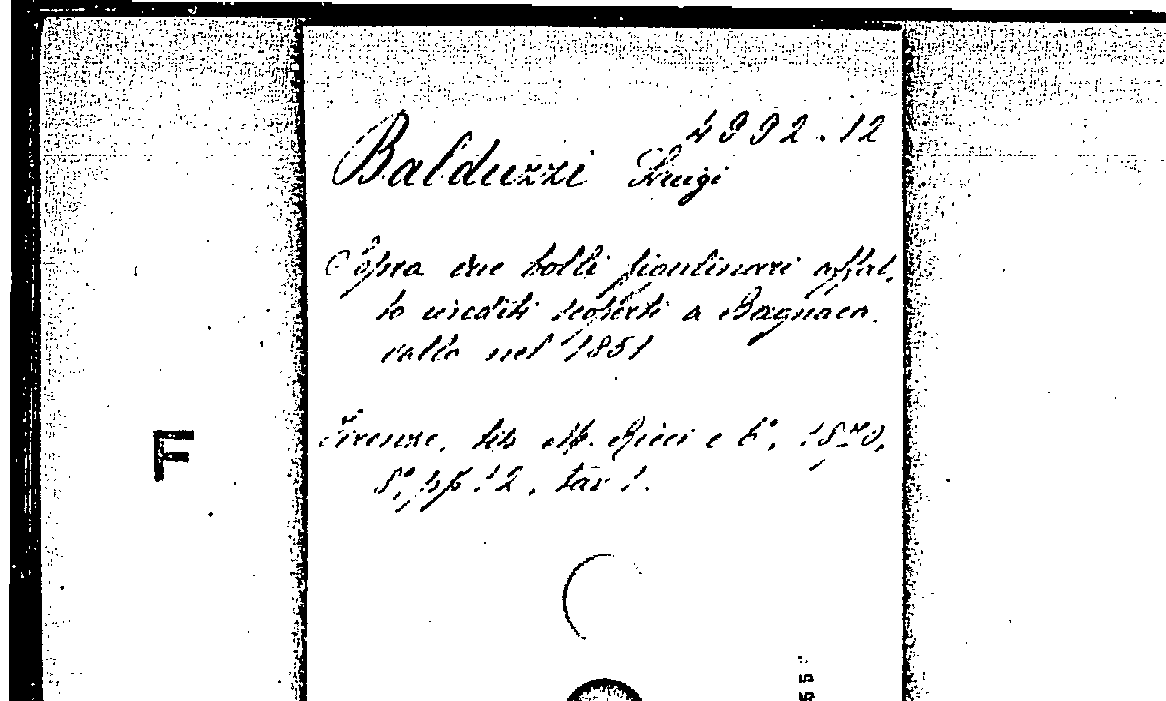 4992.12
Balduzzi Luigi
Sopra due bolli figulinarii affat,
to inediti scoperti a Bagnaca,
vallo nel 1851
Firenze, tip. M. Ricci e C°, 1870,
8°, pp. 12, tav 1.
F
55